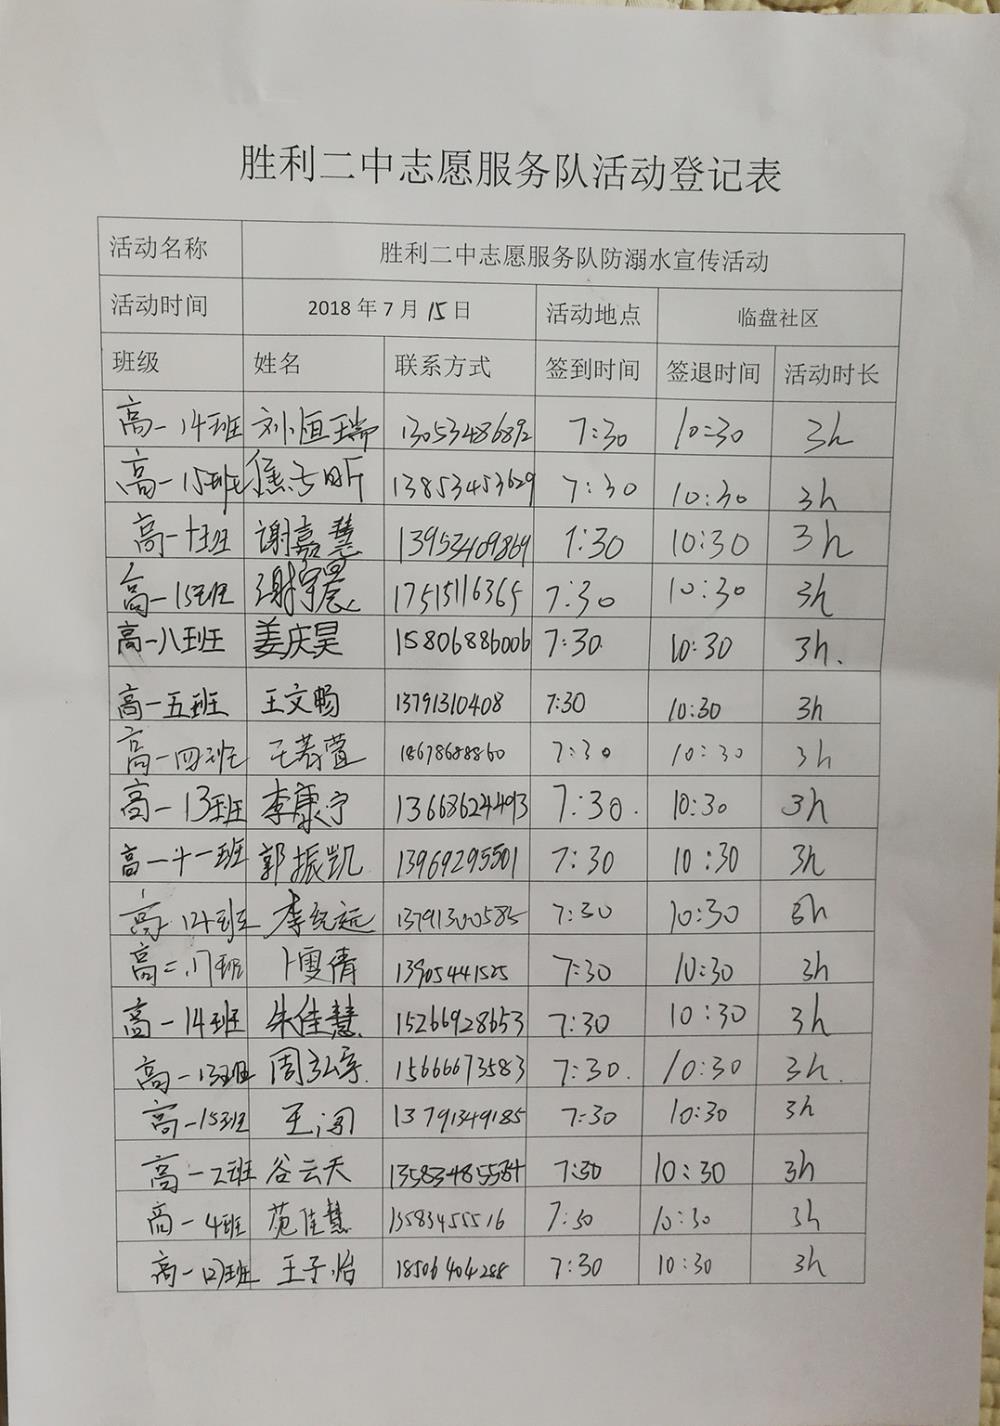 胜利二中志愿服务队活动登记表
活动名称 胜利二中志愿服务队防溺水宣传活动
活动时间 2018年7月15日 活动地点 临盘社区
班级 姓名 联系方式 签到时间 签退时间 活动时长
高一14班 刘恒瑞 13053486892 7:30 10:30 3h
高一15班 13853453629 7:30 10:30 3h
高一十班 谢嘉慧 13953409869 7:30 10:30 3h
高一15班 谢宇晨 17515116365 7:30 10:30 3h
高一八班 姜庆昊 15806886006 7:30 10:30 3h.
高一五班 王文畅 13791310408 7:30 10:30 3h
高一四班 王若萱 18678688860 7:30 10:30 3h
高一13班 李康宁 13668624493 7:30. 10:30 3h
高一十一班 郭振凯 13969295501 7:30 10:30 3h
高一12班 李纪远 13791300585 7:30 10:30 3h
高二.17班 卜雯倩 13905441525 7:30 10:30 3h
高一14班 朱佳慧 15266928653 7:30 10:30 3h
高一13班 周弘宇 15666673583 7:30. 10:30 3h.
高一15班 王闯 13791349185 7:30 10:30 3h
高一2班 谷云天 13583485584 7:30 10:30 3h
高一4班 苑佳慧 13583455516 7:30 10:30 3h
高一四班 王子怡 18506404288 7:30 10:30 3h